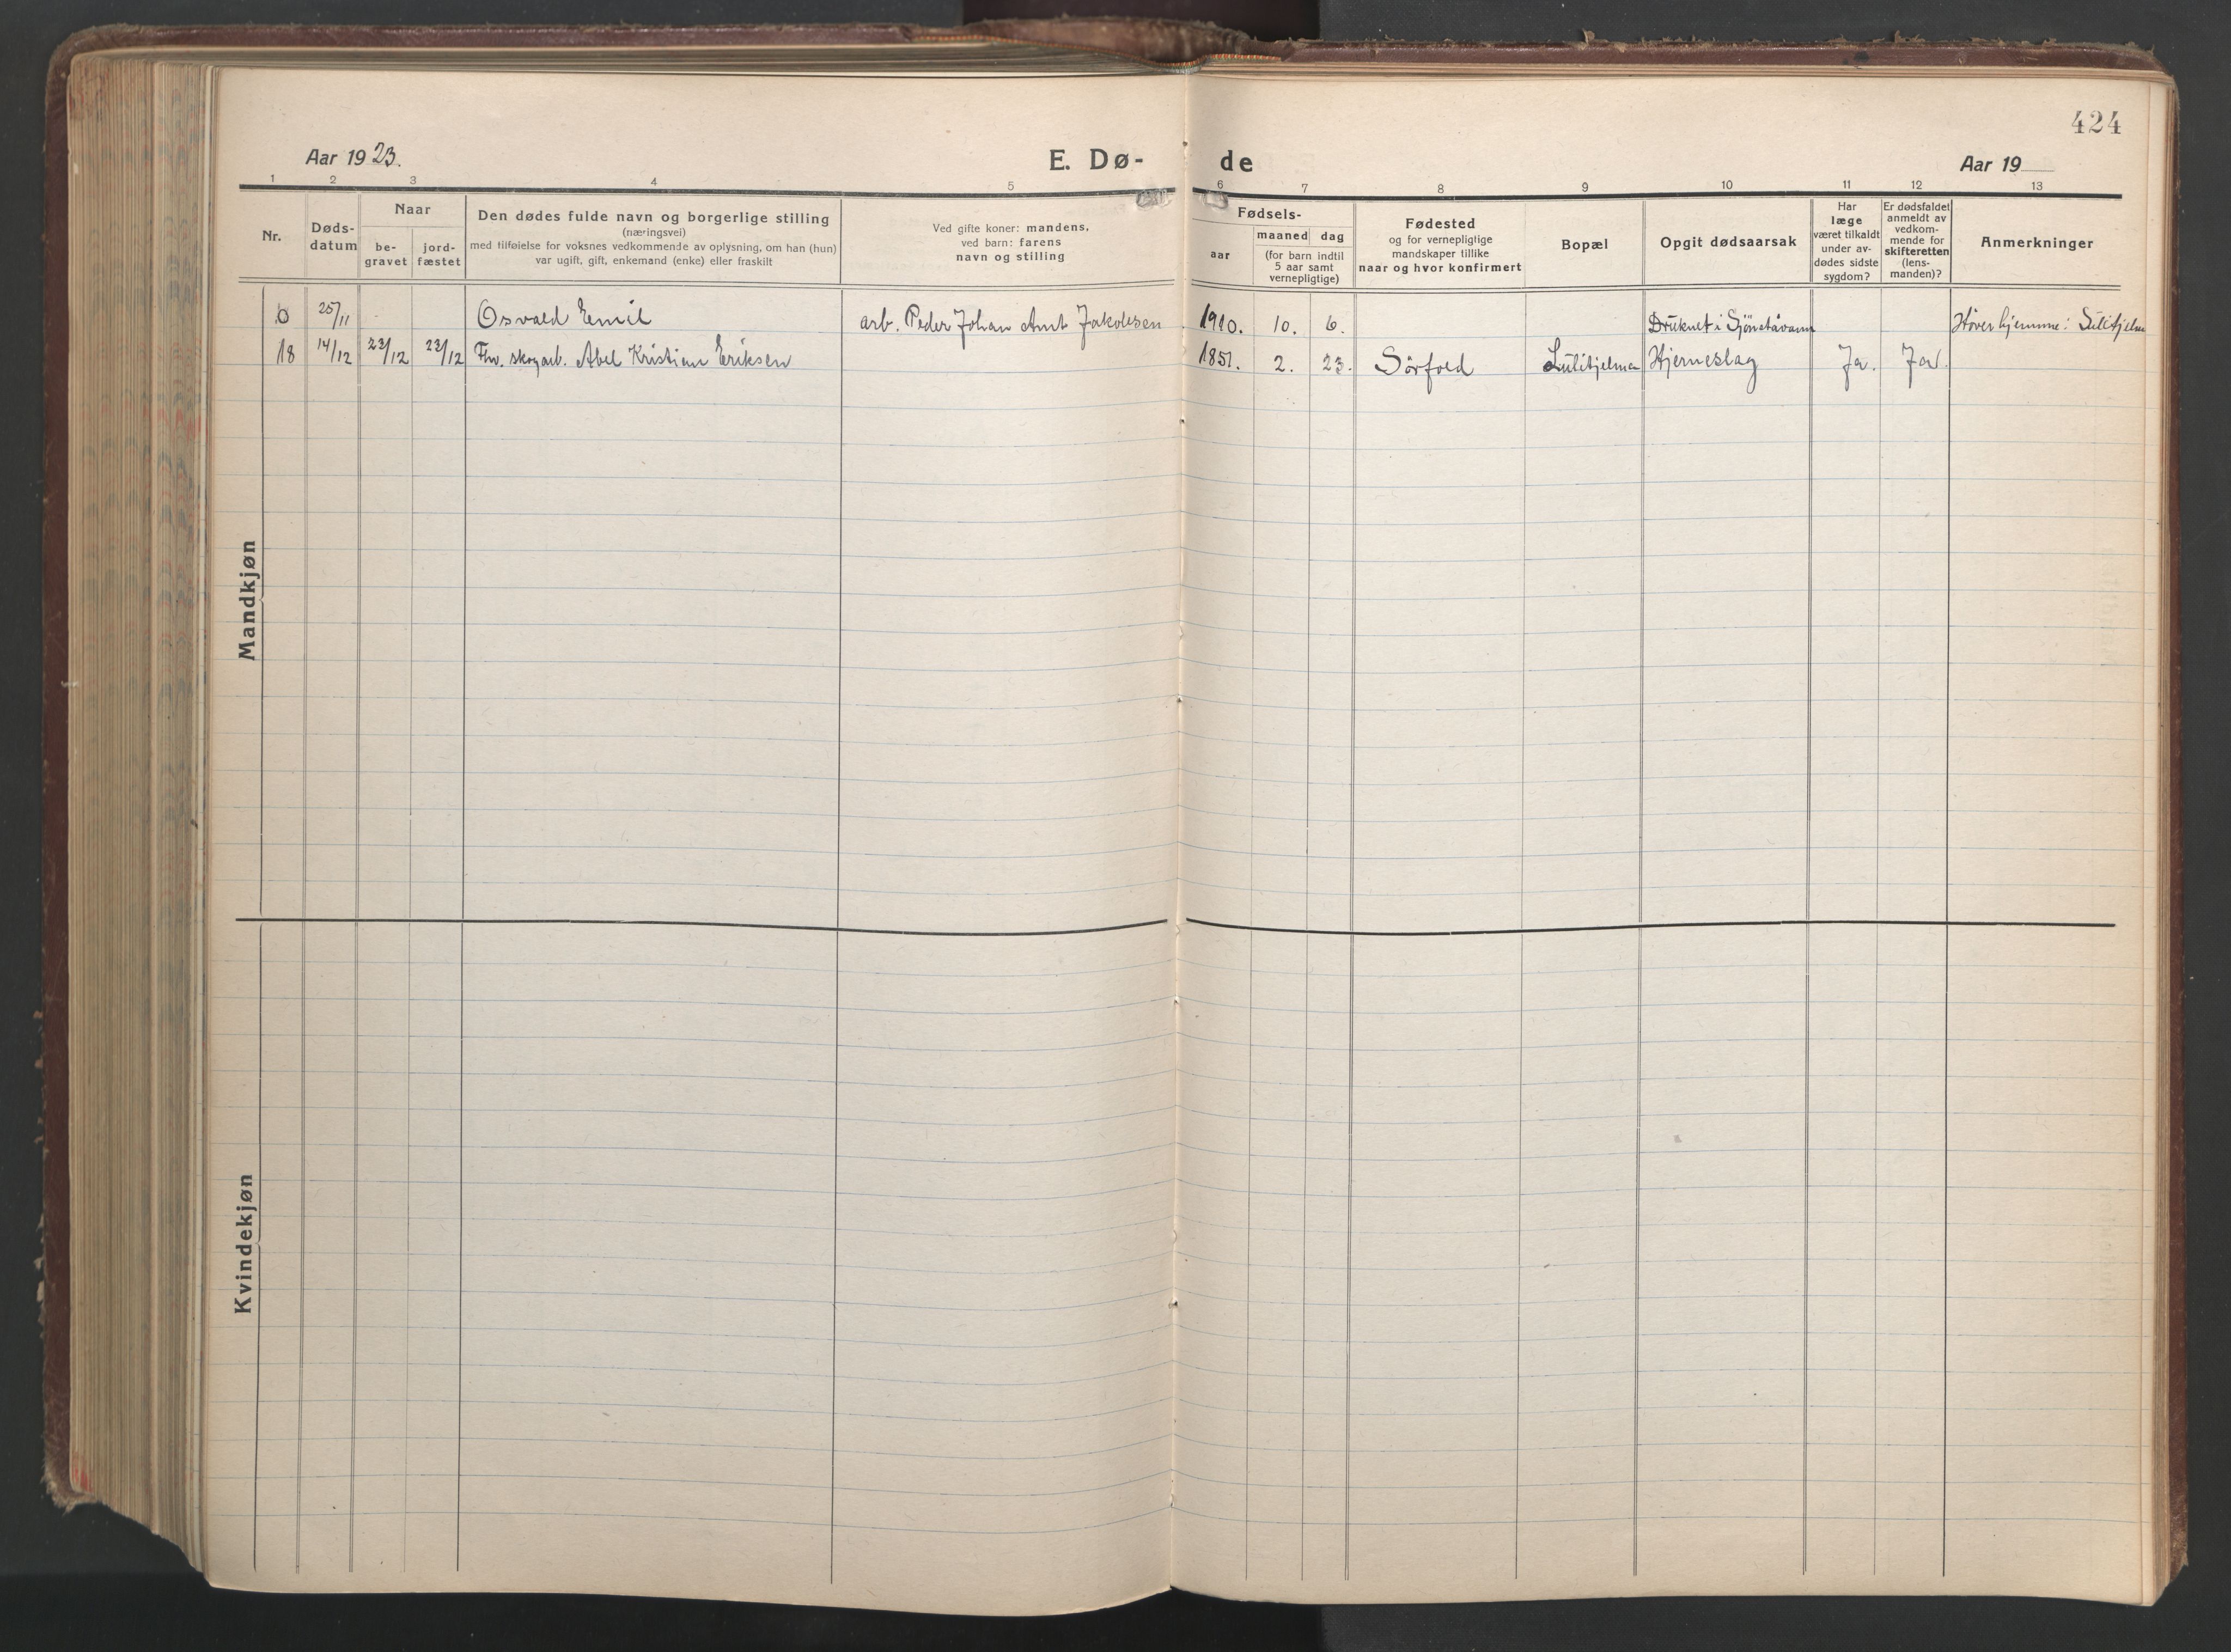 424
Aar 1923.
E. Dø-
de
Aar 19
1 2 3 4 5 6 7 8 9 10 11 12 13
Nr.
Døds-
datum
Naar
be-
gravet
jord-
fæstet
Den dødes fulde navn og borgerlige stilling
(næringsvei)
med tilføielse for voksnes vedkommende av oplysning, om han (hun)
var ugift, gift, enkemand (enke) eller fraskilt
Ved gifte koner: mandens,
ved barn: farens
navn og stilling
Fødsels-
aar
maaned dag
(for barn indtil
5 aar samt
vernepligtige)
Fødested
og for vernepligtige
mandskaper tillike
naar og hvor konfirmert
Bopæl
Opgit dødsaarsak
Har
læge
været tilkaldt
under av-
dødes sidste
sygdom?
Er dødsfaldet
anmeldt av
vedkom-
mende for
skifteretten
(lens-
manden)?
Anmerkninger
0 25/11 Osvald Emil arb. Peder Johan Amt Jakobsen 1910. 10. 6. Druknet i Sjønståvann Hører hjemme i Sulitjelma
18 14/12 23/12 23/12 Fhv. skogarb. Abel Kristian Eriksen 1851. 2. 23. Sörfold Sulitjelma Hjerneslag Ja. Ja.
Mandkjøn
Kvindekjøn